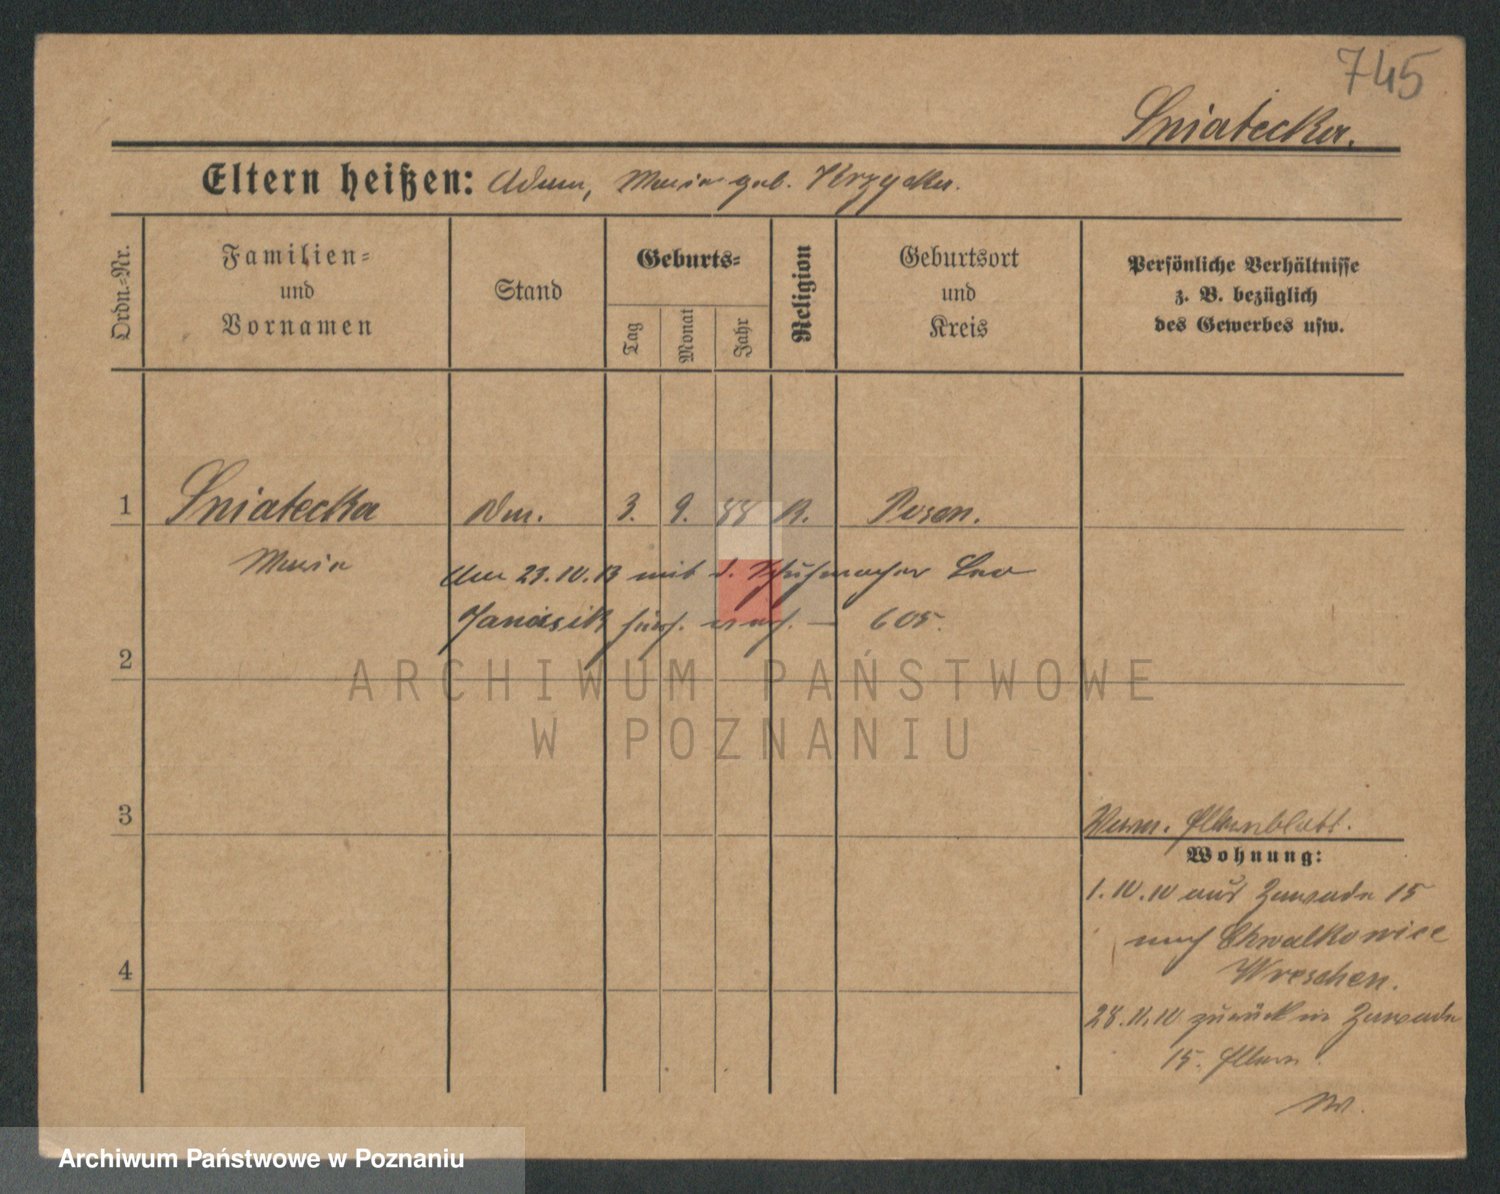 745
Sniatecka.
Eltern heißen: Adam, Maria geb. Krzycka.
Ordn.-Nr.
Familien- und Vornamen
Stand
Geburts-
Tag
Monat
Jahr
Religion
Geburtsort und Kreis
Persönliche Verhältnisse z. B. bezüglich des Gewerbes usw.
1 Sniatecka 3. 9. 88 R. Posen.
Maria
Am 23.10.13 mit d. Schuhmacher Leo
Janasik 605.
2
ARCHIWUM PAŃSTWOWE
W POZNANIU
3
Elternblatt.
Wohnung:
1.10.10 aus Zawade 15
nach Chwalkowice
Wreschen.
4
28.11.10 zurück in Zawade
15. Eltern.
Archiwum Państwowe w Poznaniu